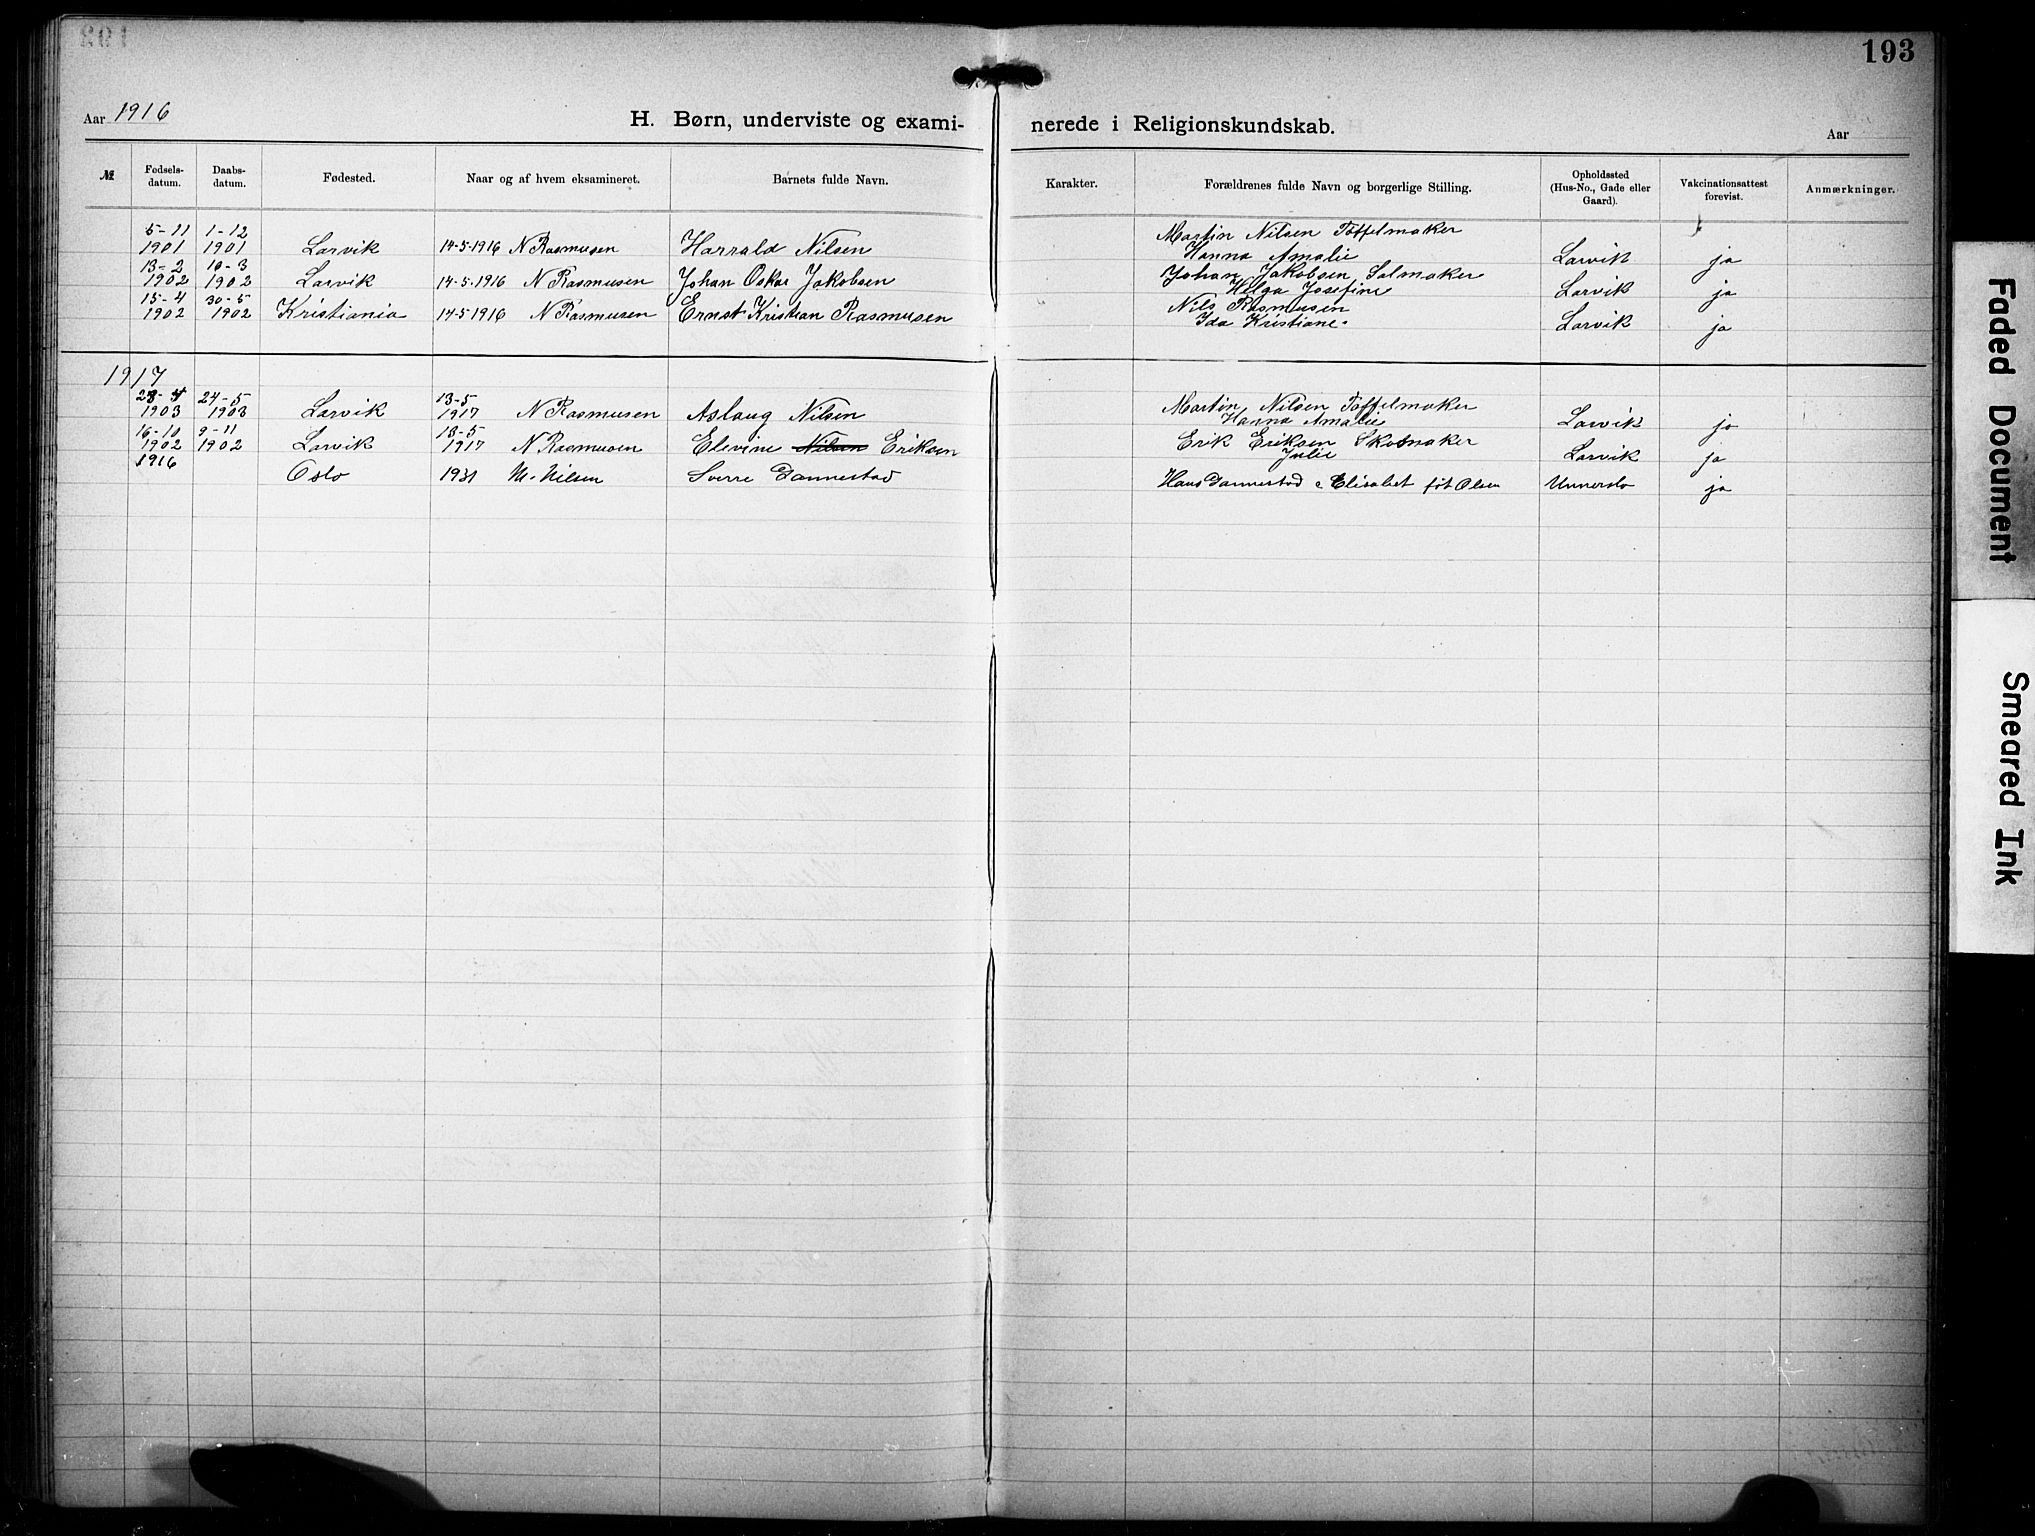 193
Aar 1916
H. Børn, underviste og exami-nerede i Religionskundskab.
Aar
№ Fødsels-datum. Daabs-datum. Fødested. Naar og af hvem eksamineret. Barnets fulde Navn. Karakter. Forældrenes fulde Navn og borgerlige Stilling. Opholdssted (Hus-No., Gade eller Gaard). Vakcinationsattest forevist. Anmærkninger.
5-11 1-12 Martin Nilsen Töffelmaker
1901 1901 Larvik 14-5-1916 N Rasmusen Harrald Nilsen Hanna Amalie Larvik ja
13-2 10-3 Johan Jakobsen Salmaker
1902 1902 Larvik 14-5-1916 N Rasmusen Johan Oskar Jakobsen Helga Josefine Larvik ja
15-4 30-5 Nils Rasmusen
1902 1902 Kristiania 14-5 1916 N Rasmusen Ernst Kristian Rasmusen Ida Kristiane Larvik ja
1917
24-5 13-5 Martin Nilsen Töffelmaker
1903 1903 Larvik 1917 N Rasmusen Aslaug Nilsen Hanna Amalie Larvik ja
16-10 9-11 13-5 Erik Eriksen Skomaker
1902 1902 Larvik 1917 N Rasmusen Elevine Nilsen Eriksen Julie Larvik ja
1916 Oslo 1931 M. Nilsen Sverre Dannestad Hans Dannestad Elisabet föt Olsen ja
Faded Document
Smeared Ink